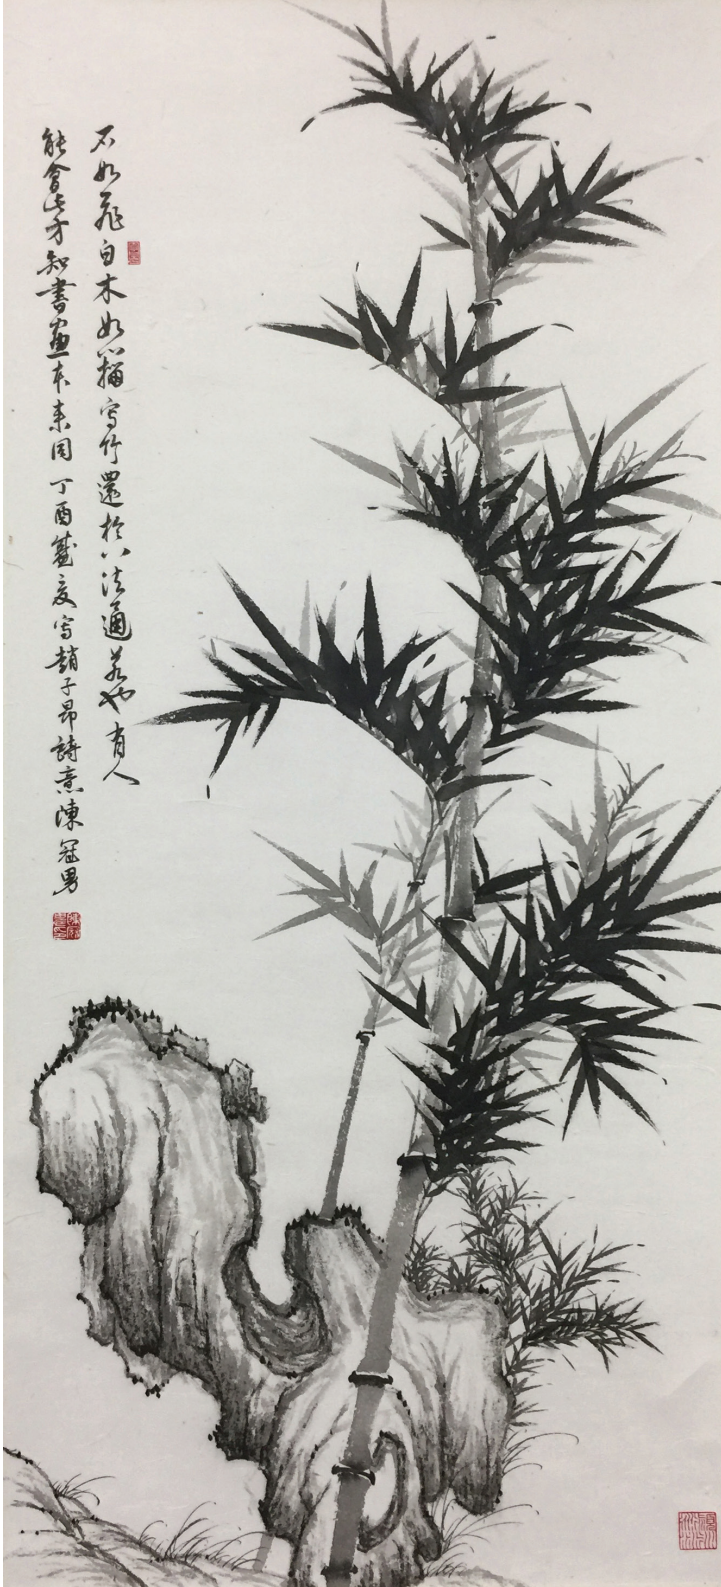 石如飛白木如籀寫竹還於八法通若也有人
能會此方知書畫本來同丁酉歲夏寫趙子昂詩意陳冠男